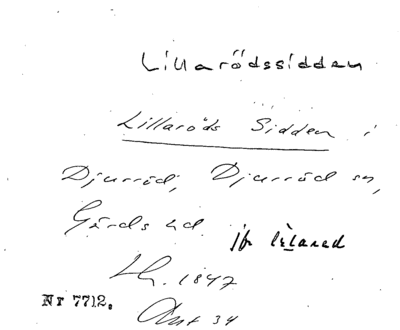 Lillarödssidden
Lillaröds Sidden i
Djurröd, Djurröd sn,
Gärds hd. jfr lilarad
Lh. 1847
Nr 7712. Akt 34